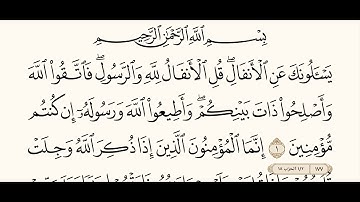 بِسْمِ اللَّهِ الرَّحْمَٰنِ الرَّحِيمِ
يَسْـَٔلُونَكَ عَنِ الْأَنفَالِ ۖ قُلِ الْأَنفَالُ لِلَّهِ وَالرَّسُولِ ۖ فَاتَّقُوا۟ اللَّهَ
وَأَصْلِحُوا۟ ذَاتَ بَيْنِكُمْ ۖ وَأَطِيعُوا۟ اللَّهَ وَرَسُولَهُۥٓ إِن كُنتُم
مُّؤْمِنِينَ ١ إِنَّمَا الْمُؤْمِنُونَ الَّذِينَ إِذَا ذُكِرَ اللَّهُ وَجِلَتْ
١٧٧ ١/٢ الحزب ١٨